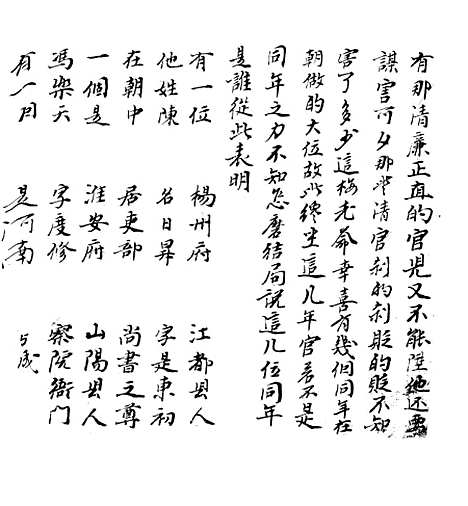 有那清廉正直的官児又不能陞他还要
謀害可夕那些清官剎的剎貶的貶不知
害了多少這梅老爺幸喜有幾個同年在
朝做的大位故此纔坐這几年官若不是
同年之力不知怎麽結局説這几位同年
是誰從此表明
有一位 楊州府 江都县人
他姓陳 名日昇 字是東初
在朝中 居吏部 尚書之尊
一個是 淮安府 山陽县人
馮樂天 字度修 察院衙门
有一 是河南